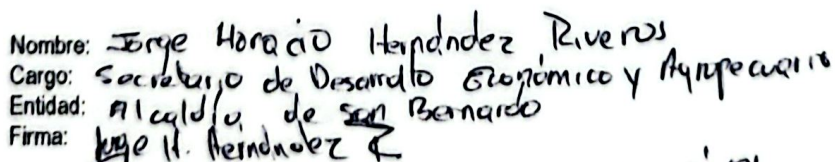 Nombre: Jorge Horacio Hernández Riveros
Cargo: Secretario de Desarrollo Económico y Agropecuario
Entidad: Alcaldía de San Bernardo
Firma: Jorge H. Hernández R